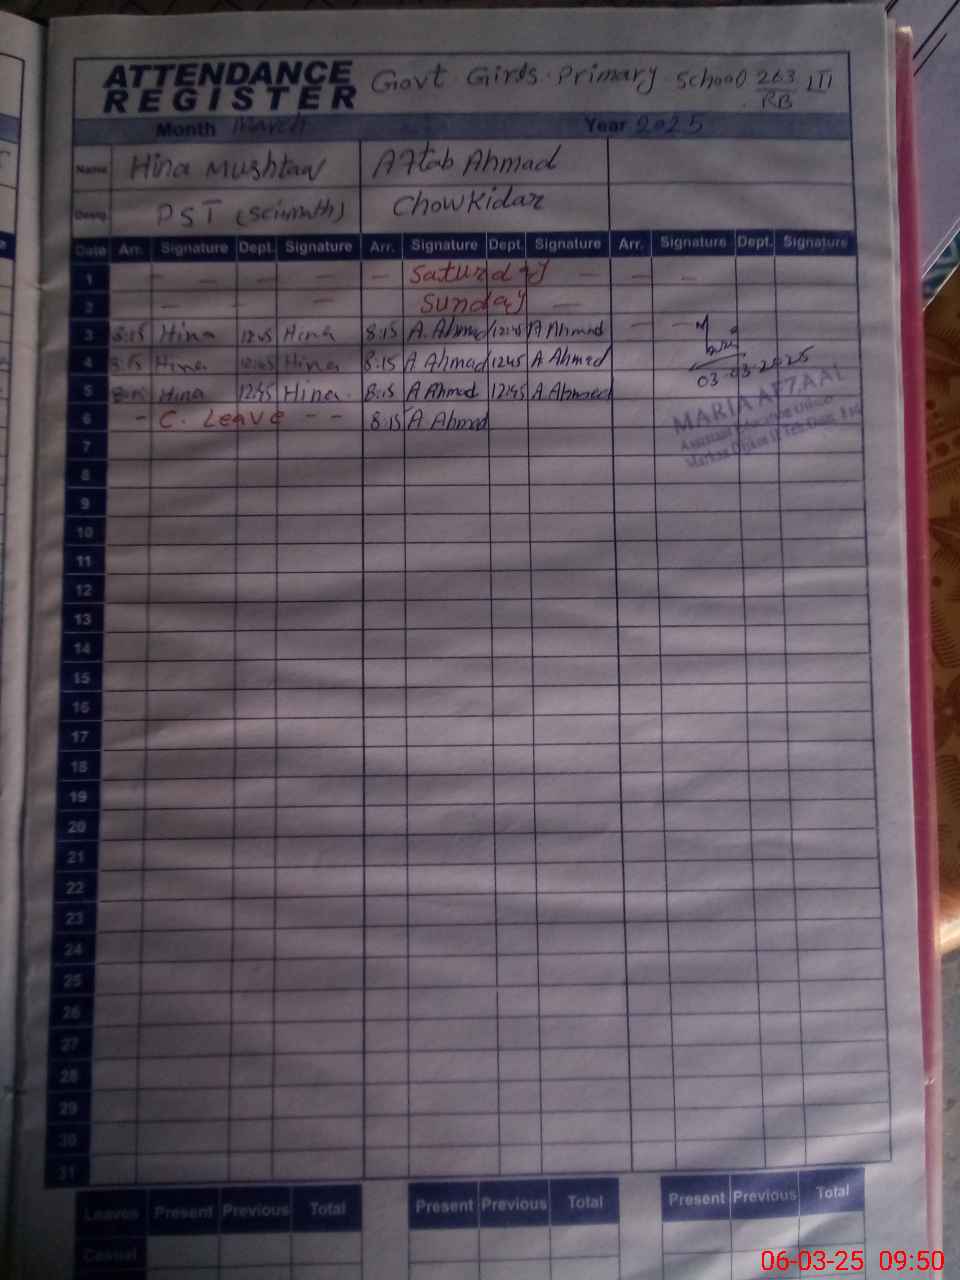 ATTENDANCE REGISTER Govt Girls Primary School 263/RB III
Month March Year 2025
Name Hina Mushtaq Aftab Ahmad
Desig. PST (Sci-math) Chowkidar
Date Arr. Signature Dept. Signature Arr. Signature Dept. Signature Arr. Signature Dept. Signature
1 - - - - - Saturday - - -
2 - - - Sunday -
3 8:15 Hina 12:45 Hina 8:15 A. Ahmad 12:45 A Ahmad - -
4 8:15 Hina 12:45 Hina 8:15 A Ahmad 12:45 A Ahmad
03-03-2025
5 Hina 12:45 Hina 8:15 A Ahmad 12:45 A Ahmad
MARIA AFZAAL
6 - C. Leave - - 8:15 A Ahmad
Assistant Education Officer
7
8
9
10
11
12
13
14
15
16
17
18
19
20
21
22
23
24
25
26
27
28
29
30
31
Leaves Present Previous Total Present Previous Total Present Previous Total
Casual
06-03-25 09:50